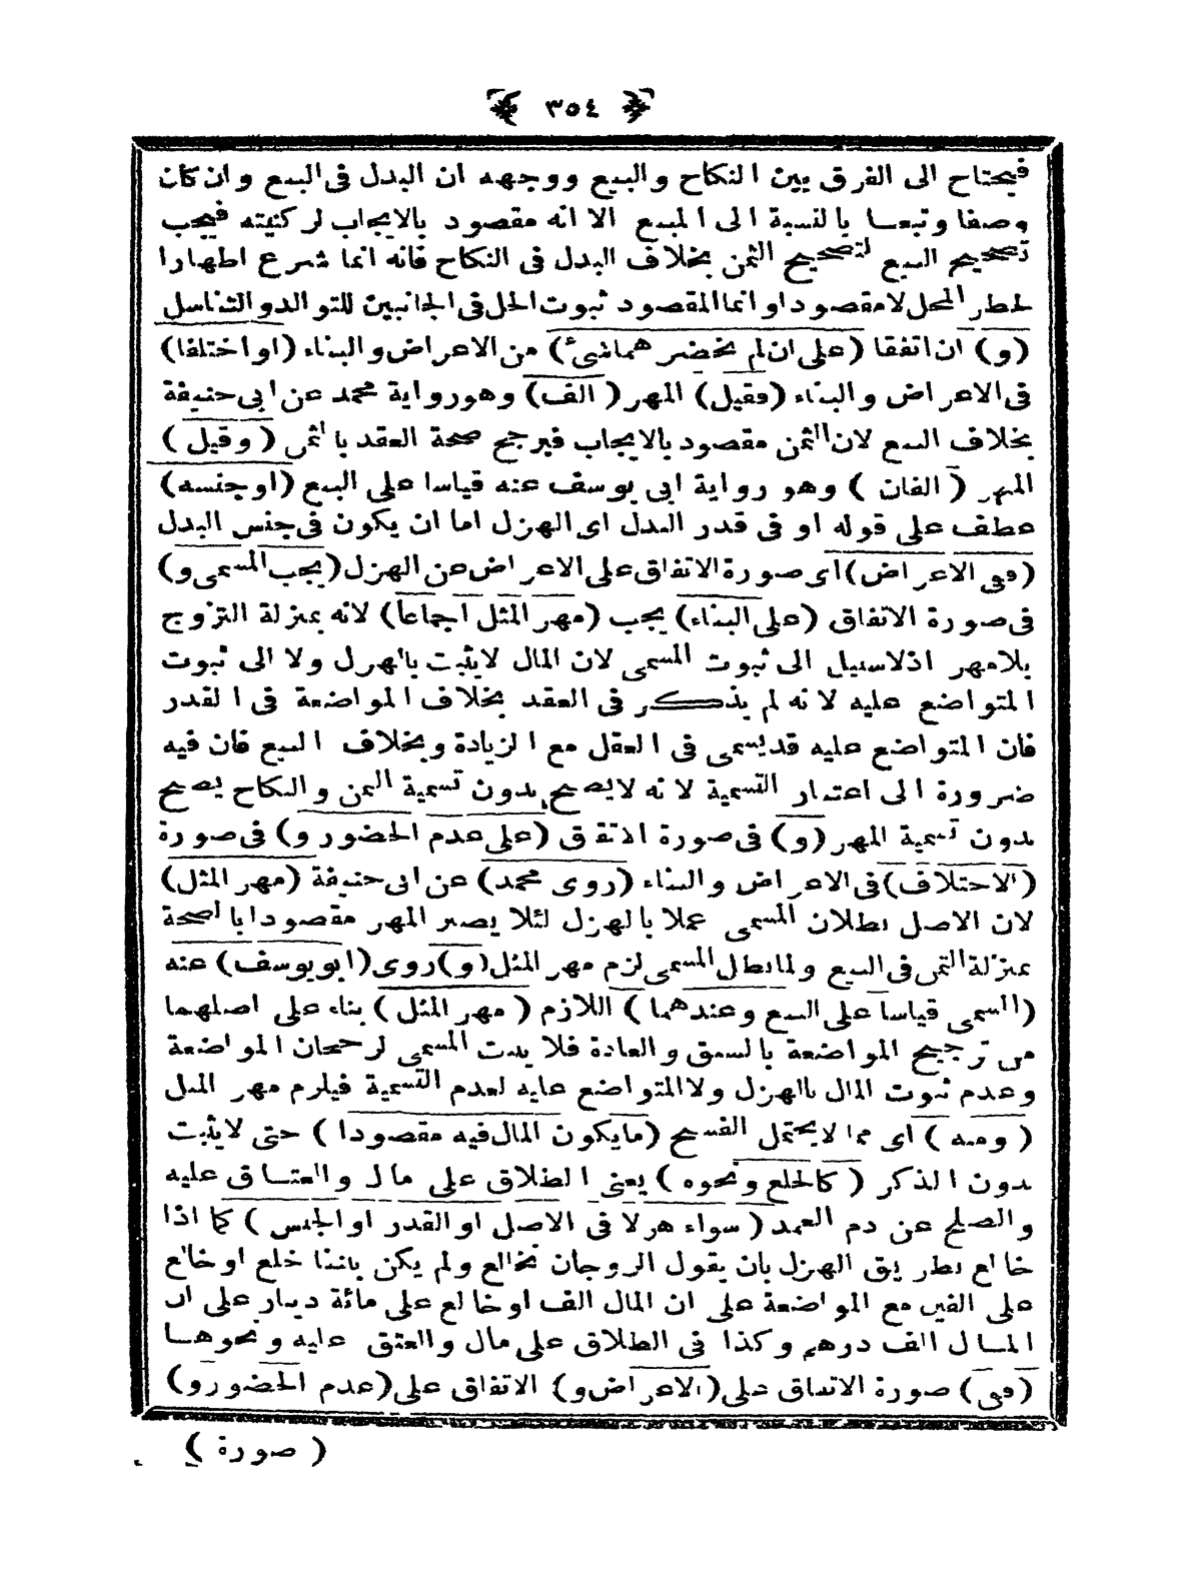 ٣٥٤
فيحتاج الى الفرق بين النكاح والبيع ووجهه ان البدل فى البيع وان كان
وصفا وتبعا بالنسبة الى المبيع الا انه مقصود بالايجاب لركنيته فيجب
تصحيح البيع لتصحيح الثمن بخلاف البدل فى النكاح فانه انما شرع اظهارا
لخطر المحل لا مقصودا وانما المقصود ثبوت الحل فى الجانبين للتوالد والتناسل
(و) ان اتفقا (على ان لم يحضرهما شئ) من الاعراض والبناء (او اختلفا)
فى الاعراض والبناء (فقيل) المهر (الف) وهو رواية محمد عن ابى حنيفة
بخلاف البيع لان الثمن مقصود بالايجاب فيرجح صحة العقد بالثمن (وقيل)
المهر (الفان) وهو رواية ابى يوسف عنه قياسا على البيع (او جنسه)
عطف على قوله او فى قدر البدل اى الهزل اما ان يكون فى جنس البدل
(ففى الاعراض) اى صورة الاتفاق على الاعراض عن الهزل (يجب المسمى و)
فى صورة الاتفاق (على البناء) يجب (مهر المثل اجماعا) لانه بمنزلة التزوج
بلا مهر اذ لا سبيل الى ثبوت المسمى لان المال لا يثبت بالهزل ولا الى ثبوت
المتواضع عليه لانه لم يذكر فى العقد بخلاف المواضعة فى القدر
فان المتواضع عليه قد يسمى فى العقل مع الزيادة وبخلاف البيع فان فيه
ضرورة الى اعتبار التسمية لانه لا يصح بدون تسمية الثمن والنكاح يصح
بدون تسمية المهر (و) فى صورة الاتفق (على عدم الحضور و) فى صورة
(الاختلاف) فى الاعراض والبناء (روى محمد) عن ابى حنيفة (مهر المثل)
لان الاصل بطلان المسمى عملا بالهزل لئلا يصير المهر مقصودا بالصحة
بمنزلة الثمن فى البيع ولما بطل المسمى لزم مهر المثل (و) روى (ابو يوسف) عنه
(المسمى قياسا على البيع وعندهما) اللازم (مهر المثل) بناء على اصلهما
من ترجيح المواضعة بالسبق والعادة فلا يثبت المسمى لرجحان المواضعة
وعدم ثبوت المال بالهزل ولا المتواضع عليه لعدم التسمية فيلزم مهر المثل
(ومنه) اى مما لا يحتمل الفسخ (ما يكون المال فيه مقصودا) حتى لا يثبت
بدون الذكر (كالخلع ونحوه) يعنى الطلاق على مال والعتاق عليه
والصلح عن دم العمد (سواء هزلا فى الاصل او القدر او الجنس) كما اذا
خالع بطريق الهزل بان يقول الزوجان نخالع ولم يكن بيننا خلع او خالع
على الفين مع المواضعة على ان المال الف او خالع على مائة دينار على ان
المال الف درهم وكذا فى الطلاق على مال والعتق عليه ونحوها
(ففى) صورة الاتفاق على (الاعراض و) الاتفاق على (عدم الحضور و)
(صورة)